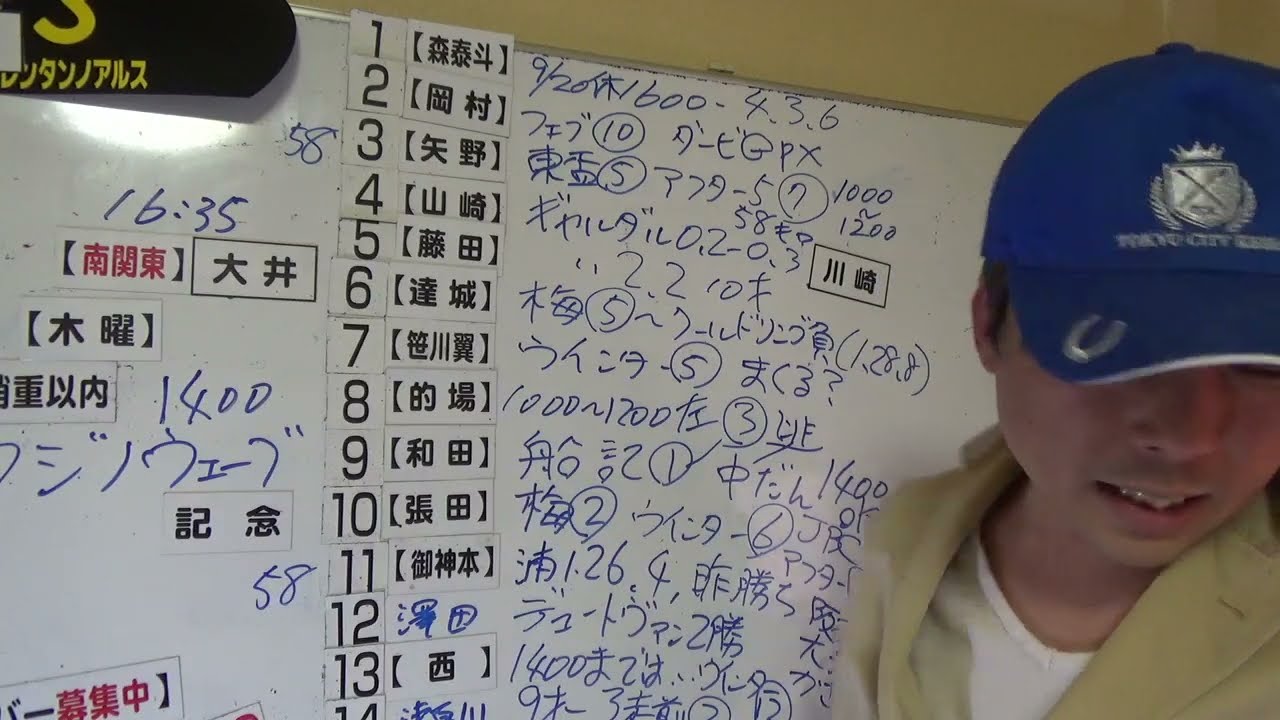 S
レンタンノアルス
16:35
【南関東】 大井
【木曜】
稍重以内 1400
フジノウェーブ
記念
58
バー募集中】
1 【森泰斗】 9/20休1600-4.3.6
2 【岡村】 フェブ⑩ ダービGP×
58 3 【矢野】 東盃⑤ アフター5⑦ 1000~1200
4 【山崎】 ギャルダル0.2-0.3 58キロ
5 【藤田】 〃 2.2 10才 川崎
6 【達城】 梅⑤~ワールドリング負(1.28.8)
7 【笹川翼】 ウインター⑤ まくる?
8 【的場】 1000~1200左③逃
9 【和田】 船記① 中だん1400 OK
10 【張田】 梅② ウインター⑥ JBC
11 【御神本】 浦1.26.4,昨勝ち アフター5
12 澤田 デュートヴァン2勝
13 【西】 1400までは…ウインター⑬
14 9才
TOKYO CITY KEIBA